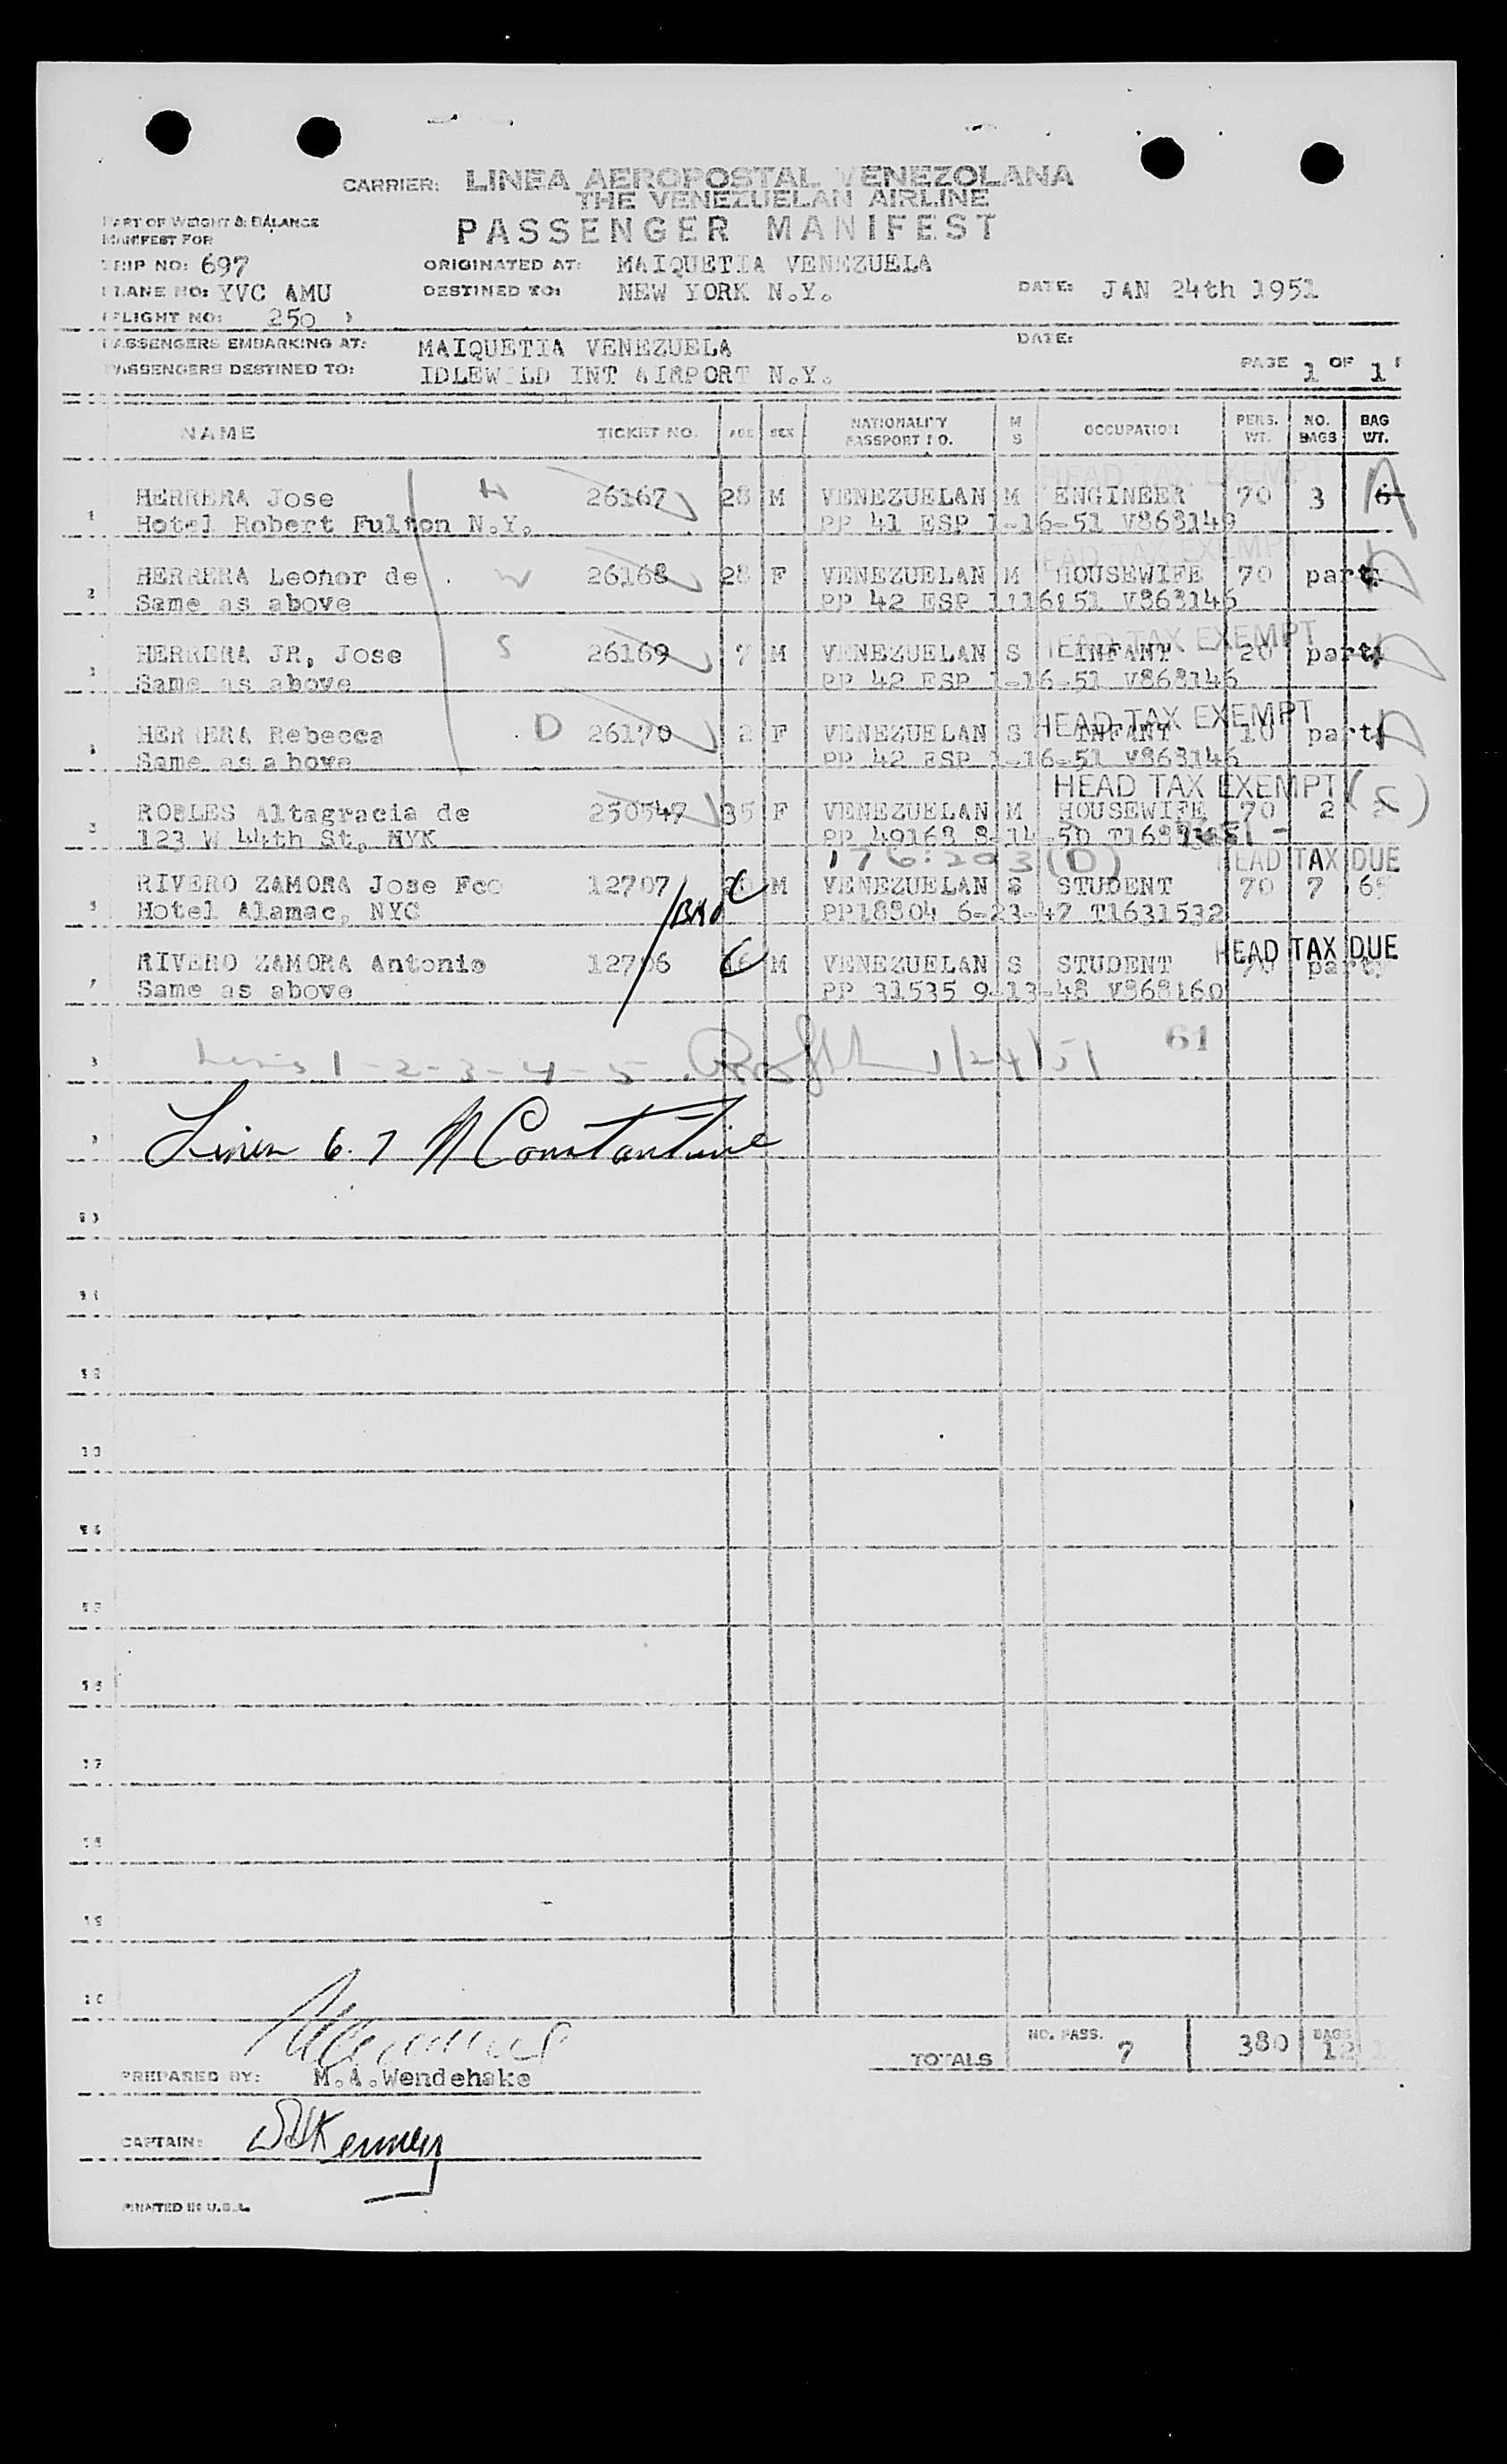 CARRIER: LINEA AEROPOSTAL VENEZOLANA
THE VENEZUELAN AIRLINE
PART OF WEIGHT & BALANCE
MANIFEST FOR
PASSENGER MANIFEST
TRIP NO: 697 ORIGINATED AT: MAIQUETIA VENEZUELA
PLANE NO: YVC AMU DESTINED TO: NEW YORK N.Y. DATE: JAN 24th 1951
(FLIGHT NO: 250 )
PASSENGERS EMBARKING AT: MAIQUETIA VENEZUELA DATE:
PASSENGERS DESTINED TO: IDLEWILD INT AIRPORT N.Y. PAGE 1 OF 1
NAME TICKET NO. AGE SEX NATIONALITY PASSPORT NO. M S OCCUPATION PERS. WT. NO. BAGS BAG WT.
HEAD TAX EXEMPT
1 HERRERA Jose H 26167 28 M VENEZUELAN M ENGINEER 70 3 A
Hotel Robert Fulton N.Y. PP 41 ESP 1-16-51 V868149
HEAD TAX EXEMPT
2 HERRERA Leonor de W 26168 28 F VENEZUELAN M HOUSEWIFE 70 party D
Same as above PP 42 ESP 1-16-51 V868146
HEAD TAX EXEMPT
3 HERRERA JR, Jose S 26169 7 M VENEZUELAN S INFANT 20 party D
Same as above PP 42 ESP 1-16-51 V868146
HEAD TAX EXEMPT
4 HERRERA Rebecca D 26170 2 F VENEZUELAN S INFANT 10 party D
Same as above PP 42 ESP 1-16-51 V868146
HEAD TAX EXEMPT
5 ROBLES Altagracia de 250547 35 F VENEZUELAN M HOUSEWIFE 70 2
123 W 44th St, NYK PP 49168 8-14-50
176:203(D) HEAD TAX DUE
6 RIVERO ZAMORA Jose Fco 12707 M VENEZUELAN S STUDENT 70 7
Hotel Alamac, NYC PP18804 6-23-47 T1631532
HEAD TAX DUE
7 RIVERO ZAMORA Antonio 12706 M VENEZUELAN S STUDENT 70 party
Same as above PP 31535 9-13-48 V868160
61
8 Lines 1-2-3-4-5 1/24/51
9 Lines 6-7 N Constantine
10
11
12
13
14
15
16
17
18
19
20
TOTALS NO. PASS. 7 380 BAGS 12
PREPARED BY: M.A.Wendehake
CAPTAIN:
PRINTED IN U.S.A.